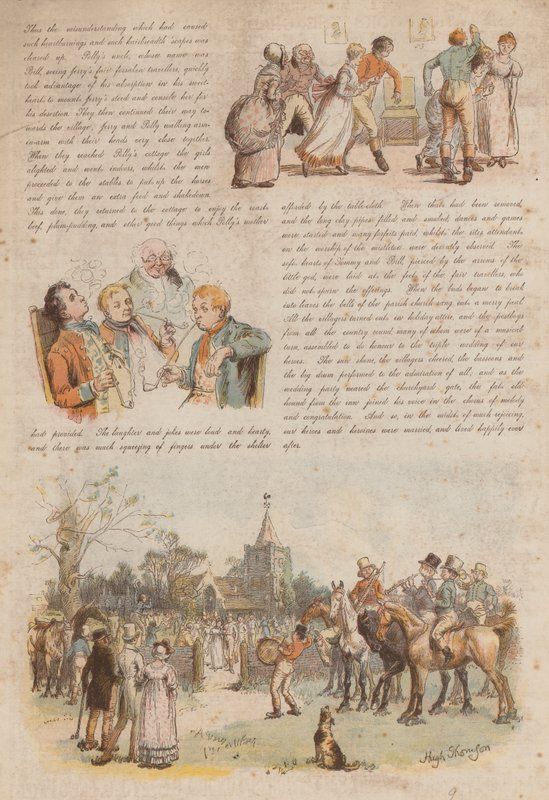 Thus the misunderstanding which had caused
such heartburnings and such hairbreadth 'scapes was
cleared up. Polly's uncle, whose name was
Bill, seeing Jerry's fair forsaken travellers, quickly
took advantage of his absorption in his sweet-
heart to mount Jerry's steed and console her for
his desertion. They then continued their way to-
wards the village, Jerry and Polly walking arm-
in-arm with their heads very close together.
When they reached Polly's cottage the girls
alighted and went indoors, whilst the men
proceeded to the stables to put up the horses
and give them an extra feed and shakedown.
This done, they returned to the cottage to enjoy the roast-
beef, plum-pudding, and other good things which Polly's mother
had provided. The laughter and jokes were loud and hearty,
and there was much squeezing of fingers under the shelter
afforded by the table-cloth. When these had been removed,
and the long clay pipes filled and smoked, dances and games
were started and many forfeits paid, whilst the rites attendant
on the worship of the mistletoe were devoutly observed. The
soft hearts of Tommy and Bill, pierced by the arrows of the
little god, were laid at the feet of the fair travellers, who
did not spurn the offerings. When the buds began to break
into leaves the bells of the parish church rang out a merry peal.
All the villagers turned out in holiday attire, and the postboys
from all the country round, many of whom were of a musical
turn, assembled to do honour to the triple wedding of our
heroes. The sun shone, the villagers cheered, the bassoons and
the big drum performed to the admiration of all; and as the
wedding party neared the churchyard gate, the fat old
hound from the inn joined his voice in the chorus of melody
and congratulation. And so, in the midst of much rejoicing,
our heroes and heroines were married, and lived happily ever
after.
Hugh Thomson
9